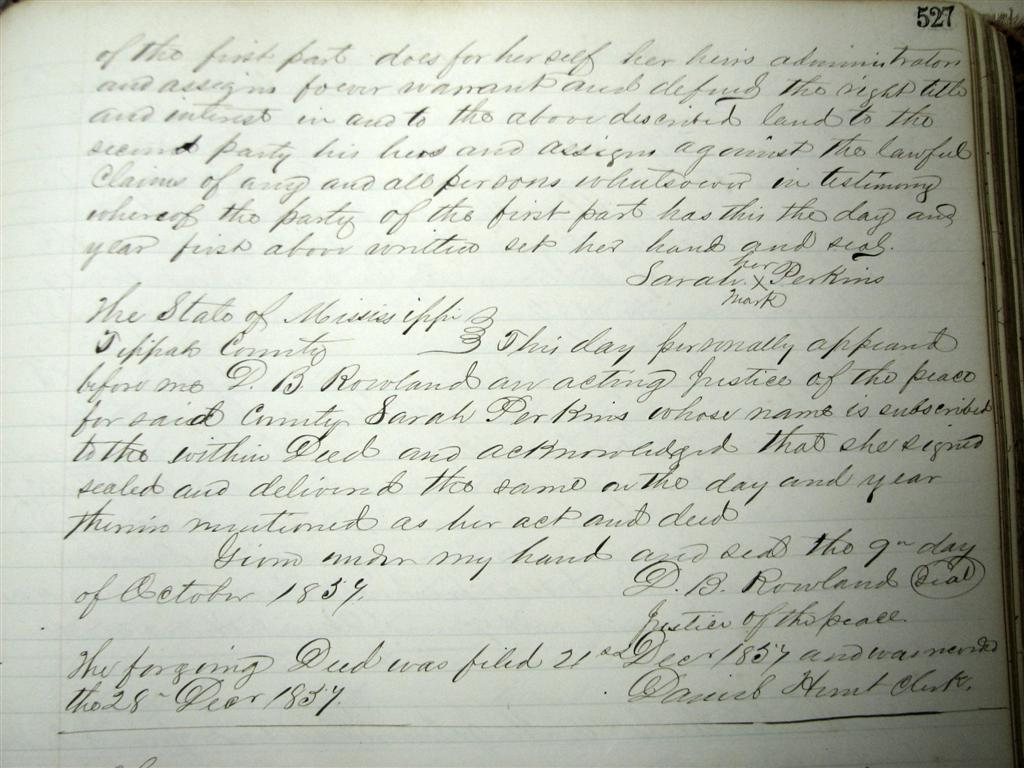 527
of the first part does for her self her heirs administrators
and assigns forever warrant and defend the right title
and interest in and to the above described land to the
second party his heirs and assigns against the lawful
Claims of any and all persons whatsoever in testimony
whereof the party of the first part has this the day and
year first above written set her hand and seal.
Sarah her X mark Perkins
The State of Mississippi
Tippah County This day personally appeared
before me D. B Rowland an acting Justice of the peace
for said County Sarah Perkins whose name is subscribed
to the within Deed and acknowledged that she signed
sealed and delivered the same on the day and year
therein mentioned as her act and deed
Given under my hand and seal the 9th day
of October 1857. D. B. Rowland Seal
Justice of the peace.
The forgoing Deed was filed 21st Decr 1857 and was recorded
the 28th Decr 1857. Daniel Hunt Clerk.